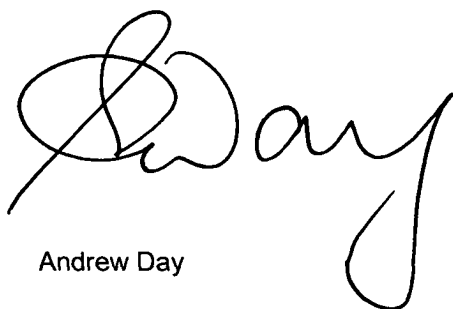 Day
Andrew Day